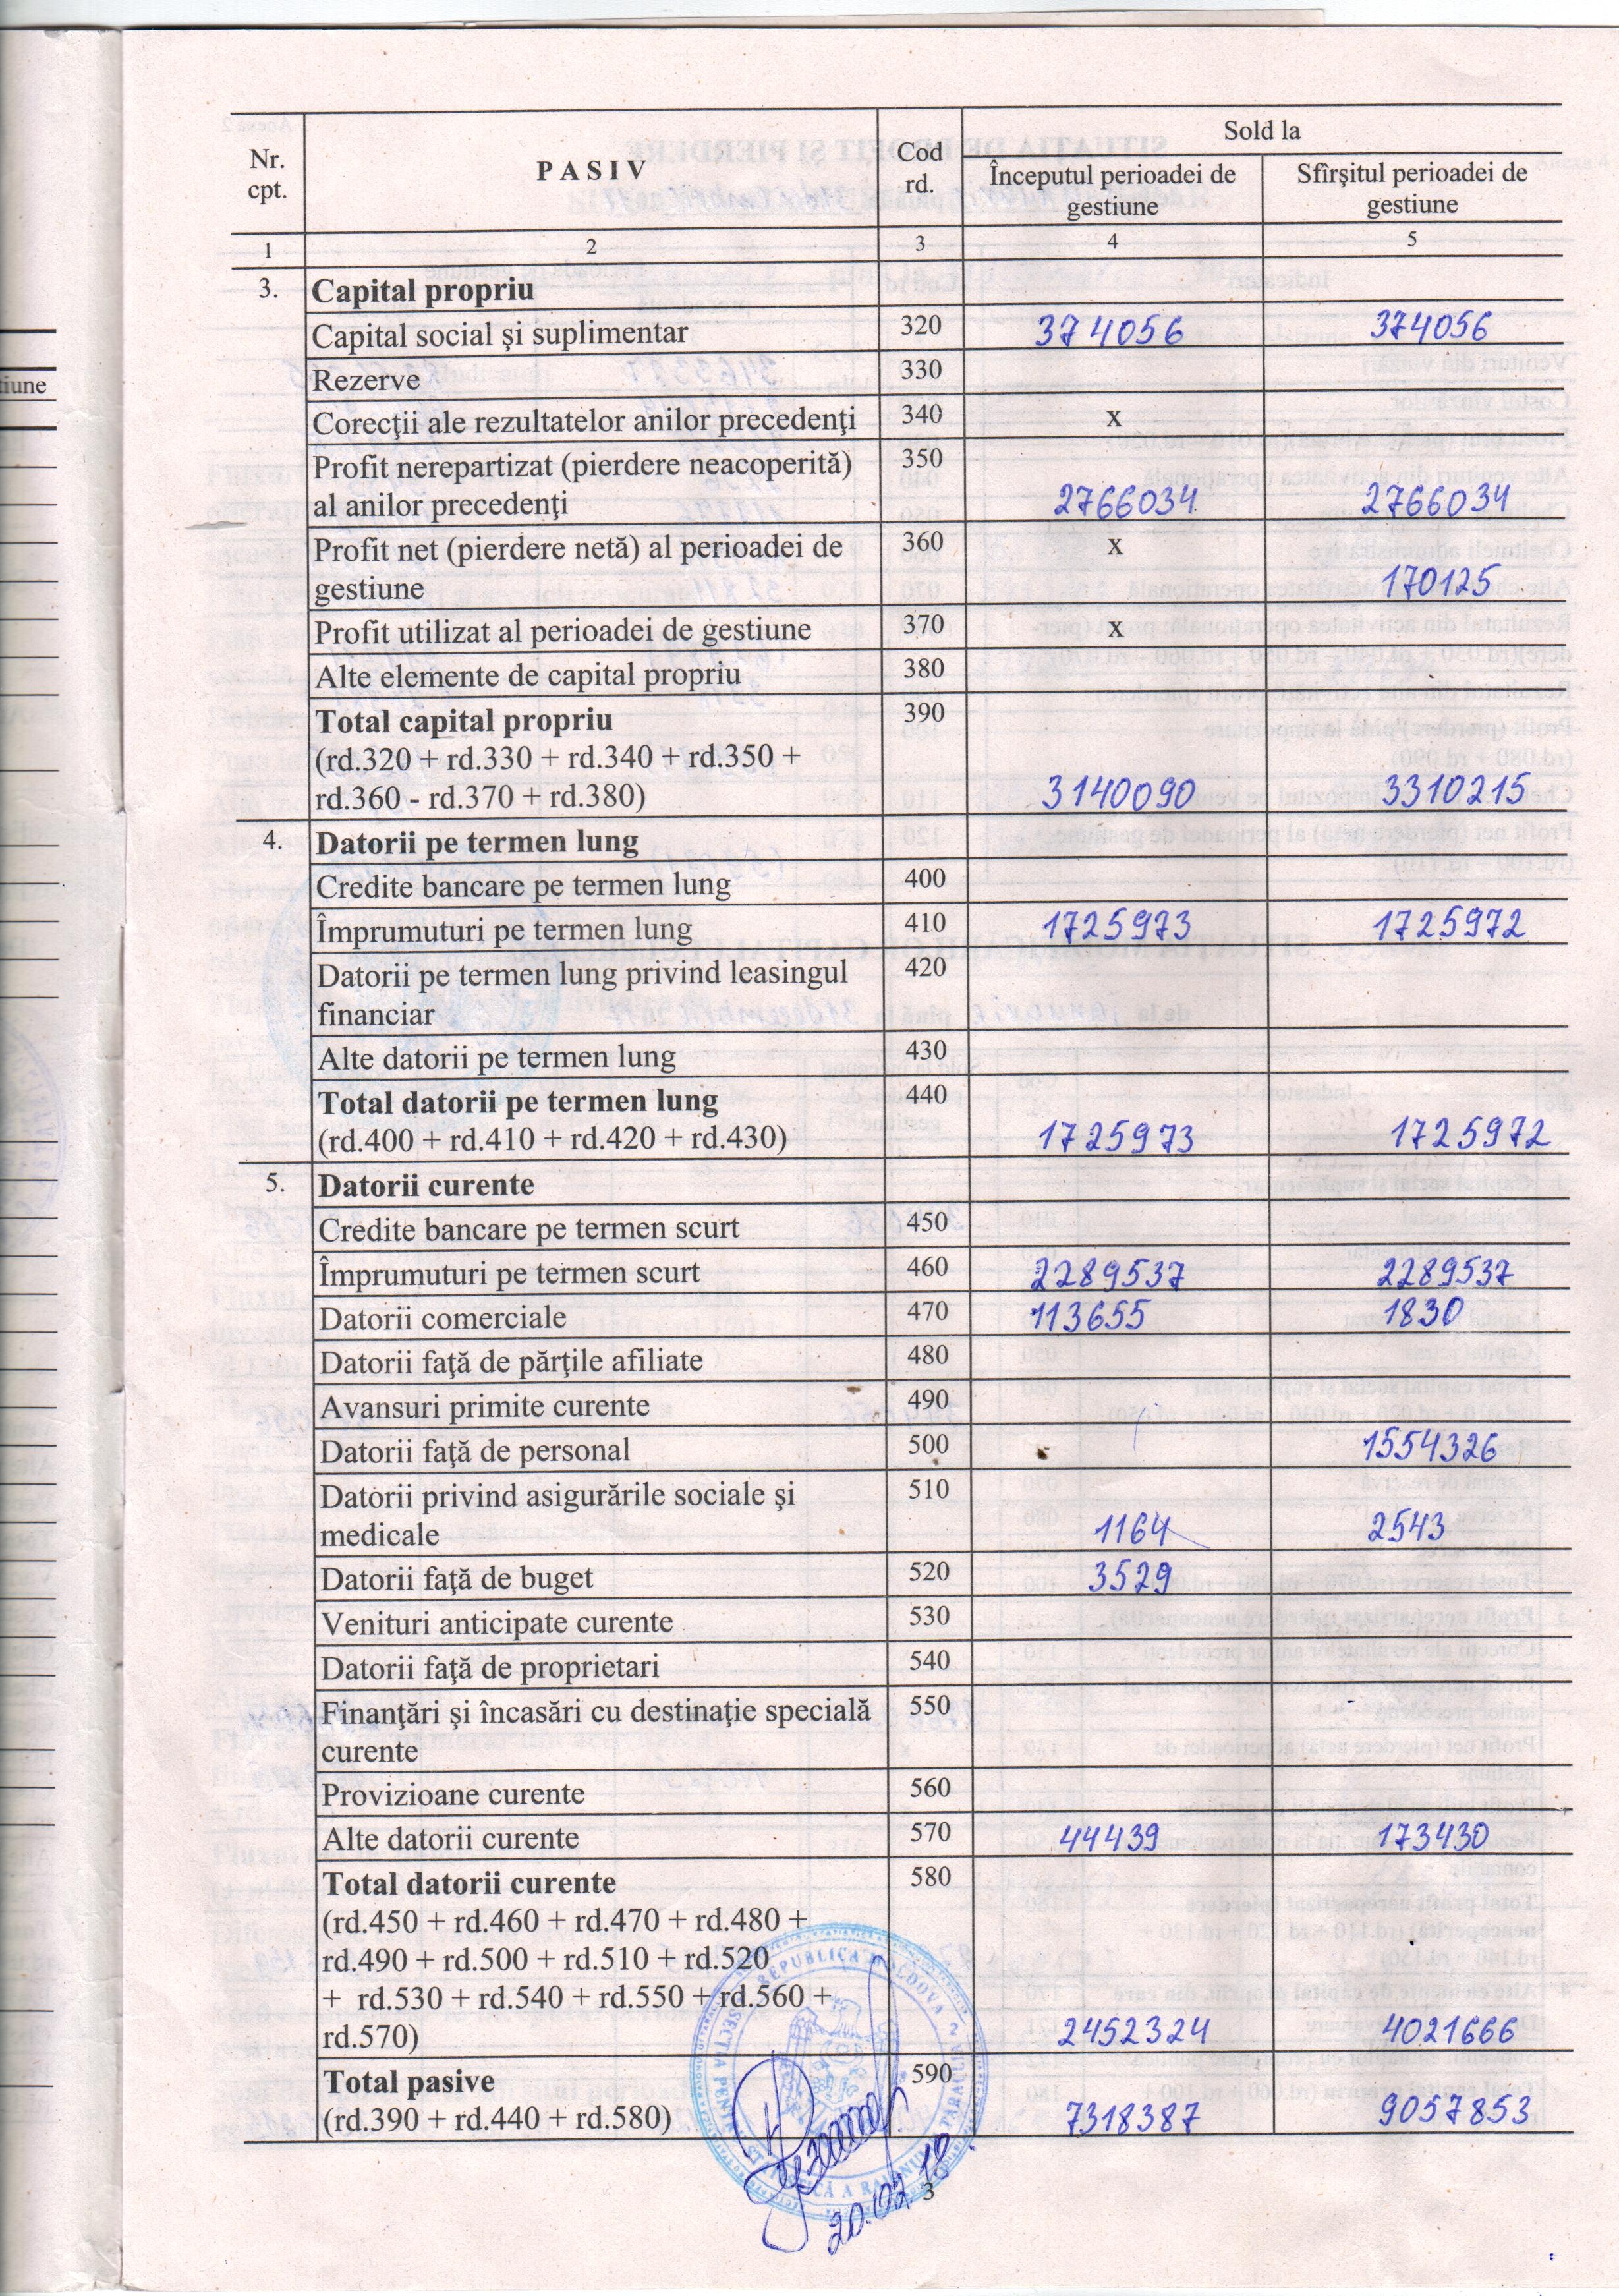 Nr. cpt. | P A S I V | Cod rd. | Sold la
Începutul perioadei de gestiune | Sfîrşitul perioadei de gestiune
1 | 2 | 3 | 4 | 5
3. | Capital propriu
Capital social şi suplimentar | 320 | 374056 | 374056
Rezerve | 330
Corecţii ale rezultatelor anilor precedenţi | 340 | x
Profit nerepartizat (pierdere neacoperită) | 350
al anilor precedenţi | 2766034 | 2766034
Profit net (pierdere netă) al perioadei de | 360 | x
gestiune | 170125
Profit utilizat al perioadei de gestiune | 370 | x
Alte elemente de capital propriu | 380
Total capital propriu | 390
(rd.320 + rd.330 + rd.340 + rd.350 +
rd.360 - rd.370 + rd.380) | 3140090 | 3310215
4. | Datorii pe termen lung
Credite bancare pe termen lung | 400
Împrumuturi pe termen lung | 410 | 1725973 | 1725972
Datorii pe termen lung privind leasingul | 420
financiar
Alte datorii pe termen lung | 430
Total datorii pe termen lung | 440
(rd.400 + rd.410 + rd.420 + rd.430) | 1725973 | 1725972
5. | Datorii curente
Credite bancare pe termen scurt | 450
Împrumuturi pe termen scurt | 460 | 2289537 | 2289537
Datorii comerciale | 470 | 113655 | 1830
Datorii faţă de părţile afiliate | 480
Avansuri primite curente | 490
Datorii faţă de personal | 500 | 1554326
Datorii privind asigurările sociale şi | 510
medicale | 1164 | 2543
Datorii faţă de buget | 520 | 3529
Venituri anticipate curente | 530
Datorii faţă de proprietari | 540
Finanţări şi încasări cu destinaţie specială | 550
curente
Provizioane curente | 560
Alte datorii curente | 570 | 44439 | 173430
Total datorii curente | 580
(rd.450 + rd.460 + rd.470 + rd.480 +
rd.490 + rd.500 + rd.510 + rd.520
+ rd.530 + rd.540 + rd.550 + rd.560 +
rd.570) | 2452324 | 4021666
Total pasive | 590
(rd.390 + rd.440 + rd.580) | 7318387 | 9057853
REPUBLICA MOLDOVA 2
SECŢIA PENTRU STATISTICĂ A RAIONULUI TARACLIA
20.02.18
3
tiune